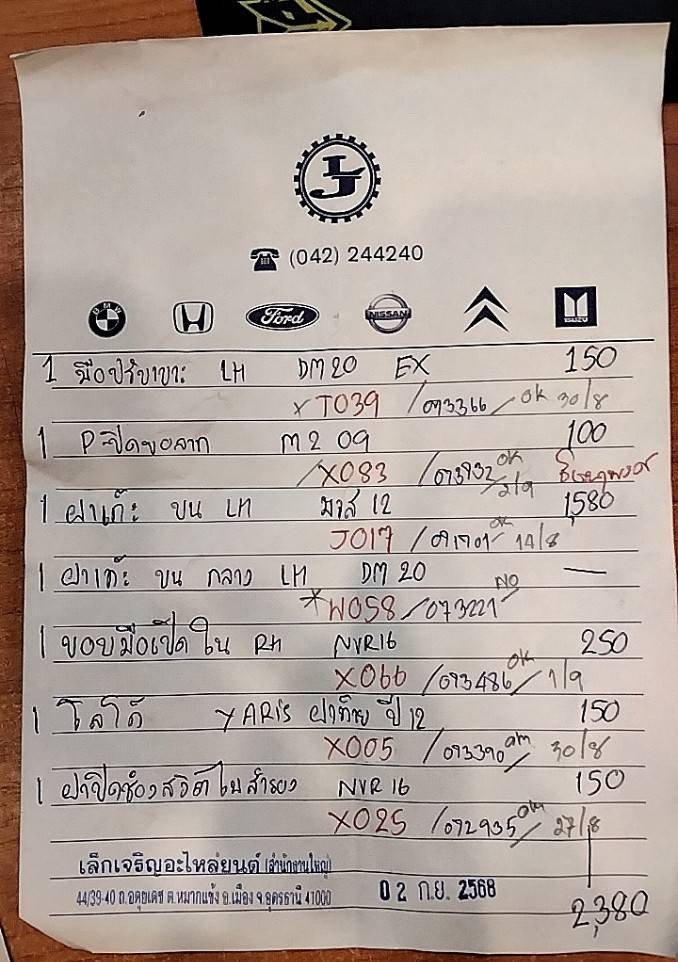 LJ
☎ (042) 244240
BMW H Ford NISSAN ISUZU
1 มือปรับเบาะ LH DM20 EX 150
×J039 /073366/ ok 30/8
1 P-ปิดขอลาก M2 09 100
/X083 /073932 ok /2/9
1 ฝาแก้ะ บน LH มาส 12 1,580
J017 / ok 14/8
1 ฝาแก้ะ บน กลาง LH DM20 —
*W058/073221 NO
1 ขอบมือเปิดใน RH NVR16 250
X066 /073486/ ok 1/9
1 โลโก้ YARIS ฝาท้าย ปี 12 150
X005 /073390/ 30/8
1 ฝาปิดช่องสวิตไม่สำรอง NVR16 150
X025 /072935/ 27/8
เล็กเจริญอะไหล่ยนต์ (สำนักงานใหญ่)
44/39-40 ถ.อดุยเดช ต.หมากแข้ง อ.เมือง จ.อุดรธานี 41000
02 ก.ย. 2568
2,380